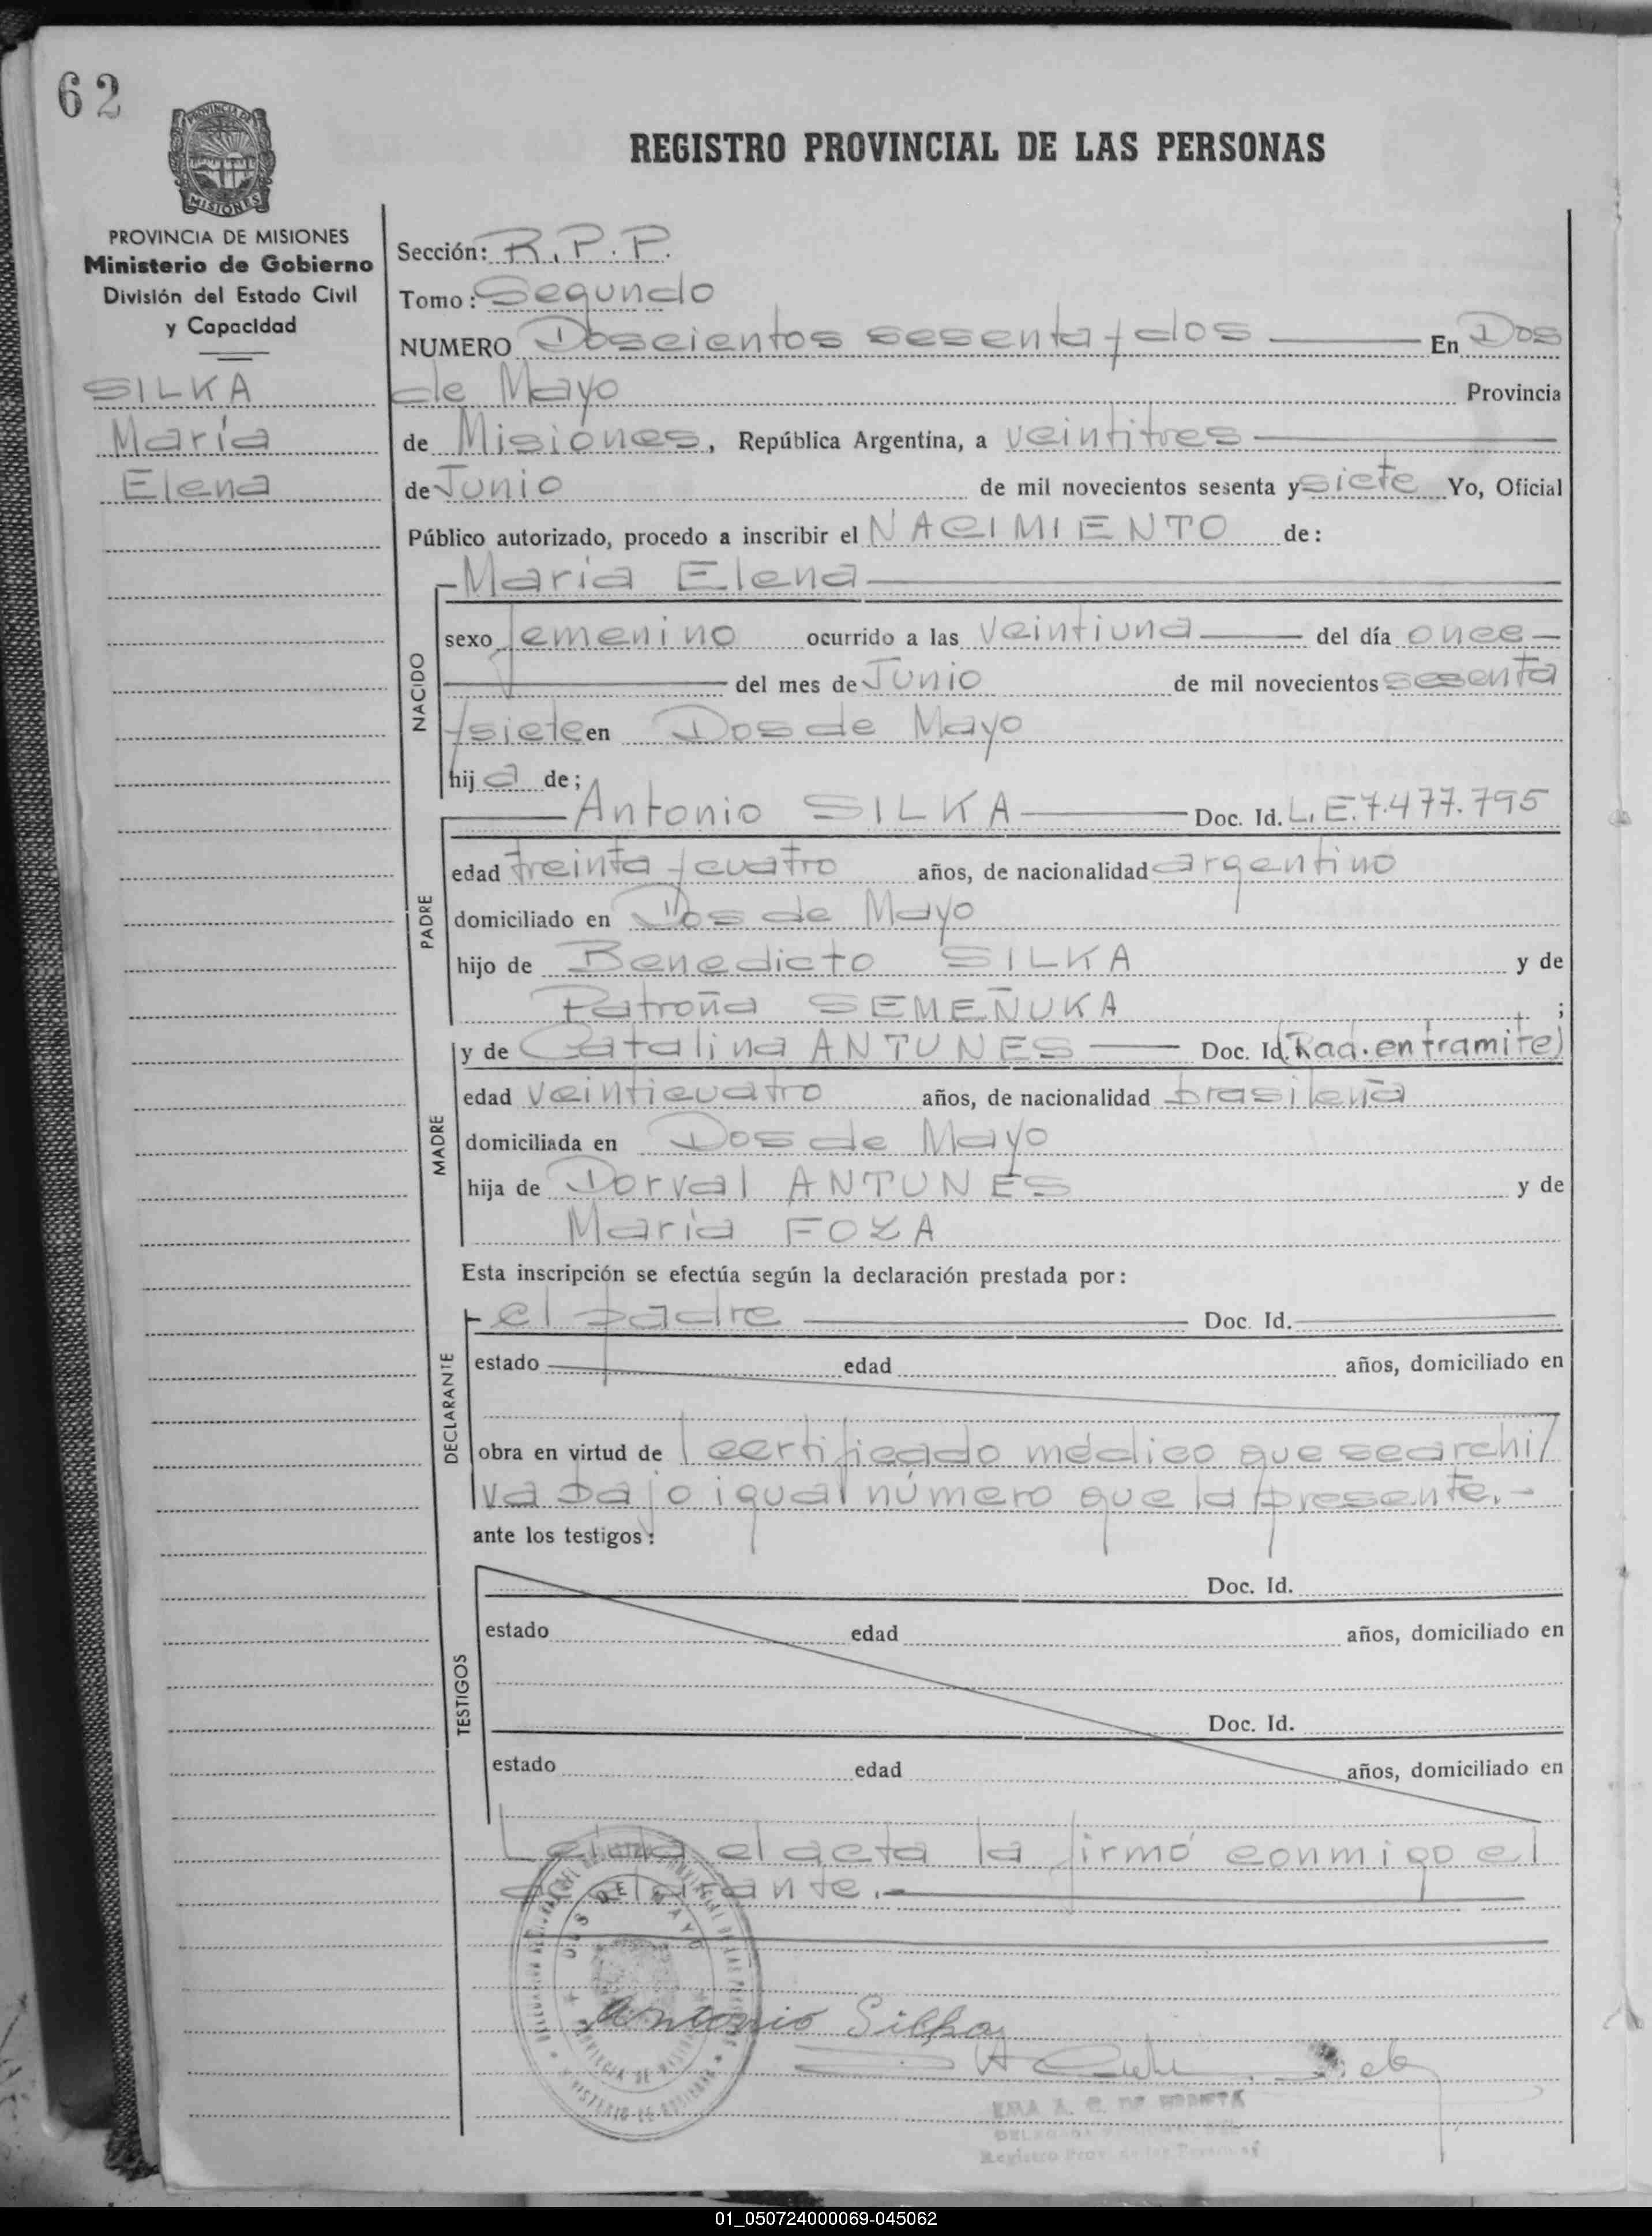 62
PROVINCIA DE
MISIONES
REGISTRO PROVINCIAL DE LAS PERSONAS
PROVINCIA DE MISIONES
Ministerio de Gobierno
División del Estado Civil
y Capacidad
SILKA
María
Elena
Sección: R.P.P.
Tomo: Segundo
NUMERO Doscientos sesenta y dos En Dos
de Mayo Provincia
de Misiones, República Argentina, a veintitres
de Junio de mil novecientos sesenta y siete Yo, Oficial
Público autorizado, procedo a inscribir el NACIMIENTO de:
María Elena
NACIDO
sexo femenino ocurrido a las veintiuna del día once
del mes de Junio de mil novecientos sesenta
y siete en Dos de Mayo
hija de;
PADRE
Antonio SILKA Doc. Id. L.E. 7.477.795
edad treinta y cuatro años, de nacionalidad argentino
domiciliado en Dos de Mayo
hijo de Benedicto SILKA y de
Patroña SEMEÑUKA ;
MADRE
y de Catalina ANTUNES Doc. Id. (Rad. en tramite)
edad veinticuatro años, de nacionalidad brasileña
domiciliada en Dos de Mayo
hija de Dorval ANTUNES y de
María FOZA
Esta inscripción se efectúa según la declaración prestada por:
DECLARANTE
el padre Doc. Id.
estado edad años, domiciliado en
obra en virtud de l certificado médico que se archi/
va bajo igual número que la presente.-
ante los testigos:
TESTIGOS
Doc. Id.
estado edad años, domiciliado en
Doc. Id.
estado edad años, domiciliado en
Leída el acta la firmó conmigo el
declarante.-
DOS DE MAYO
Antonio Silka
EMA A. C. DE
Registro Prov. de las Personas
01_050724000069-045062